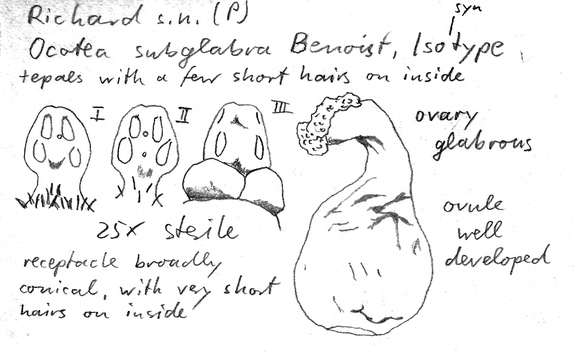 Richard s.n. (P)
syn
Ocotea subglabra Benoist, Isotype
tepals with a few short hairs on inside
I II III
ovary
glabrous
25x sterile
ovule
well
developed
receptacle broadly
conical, with very short
hairs on inside